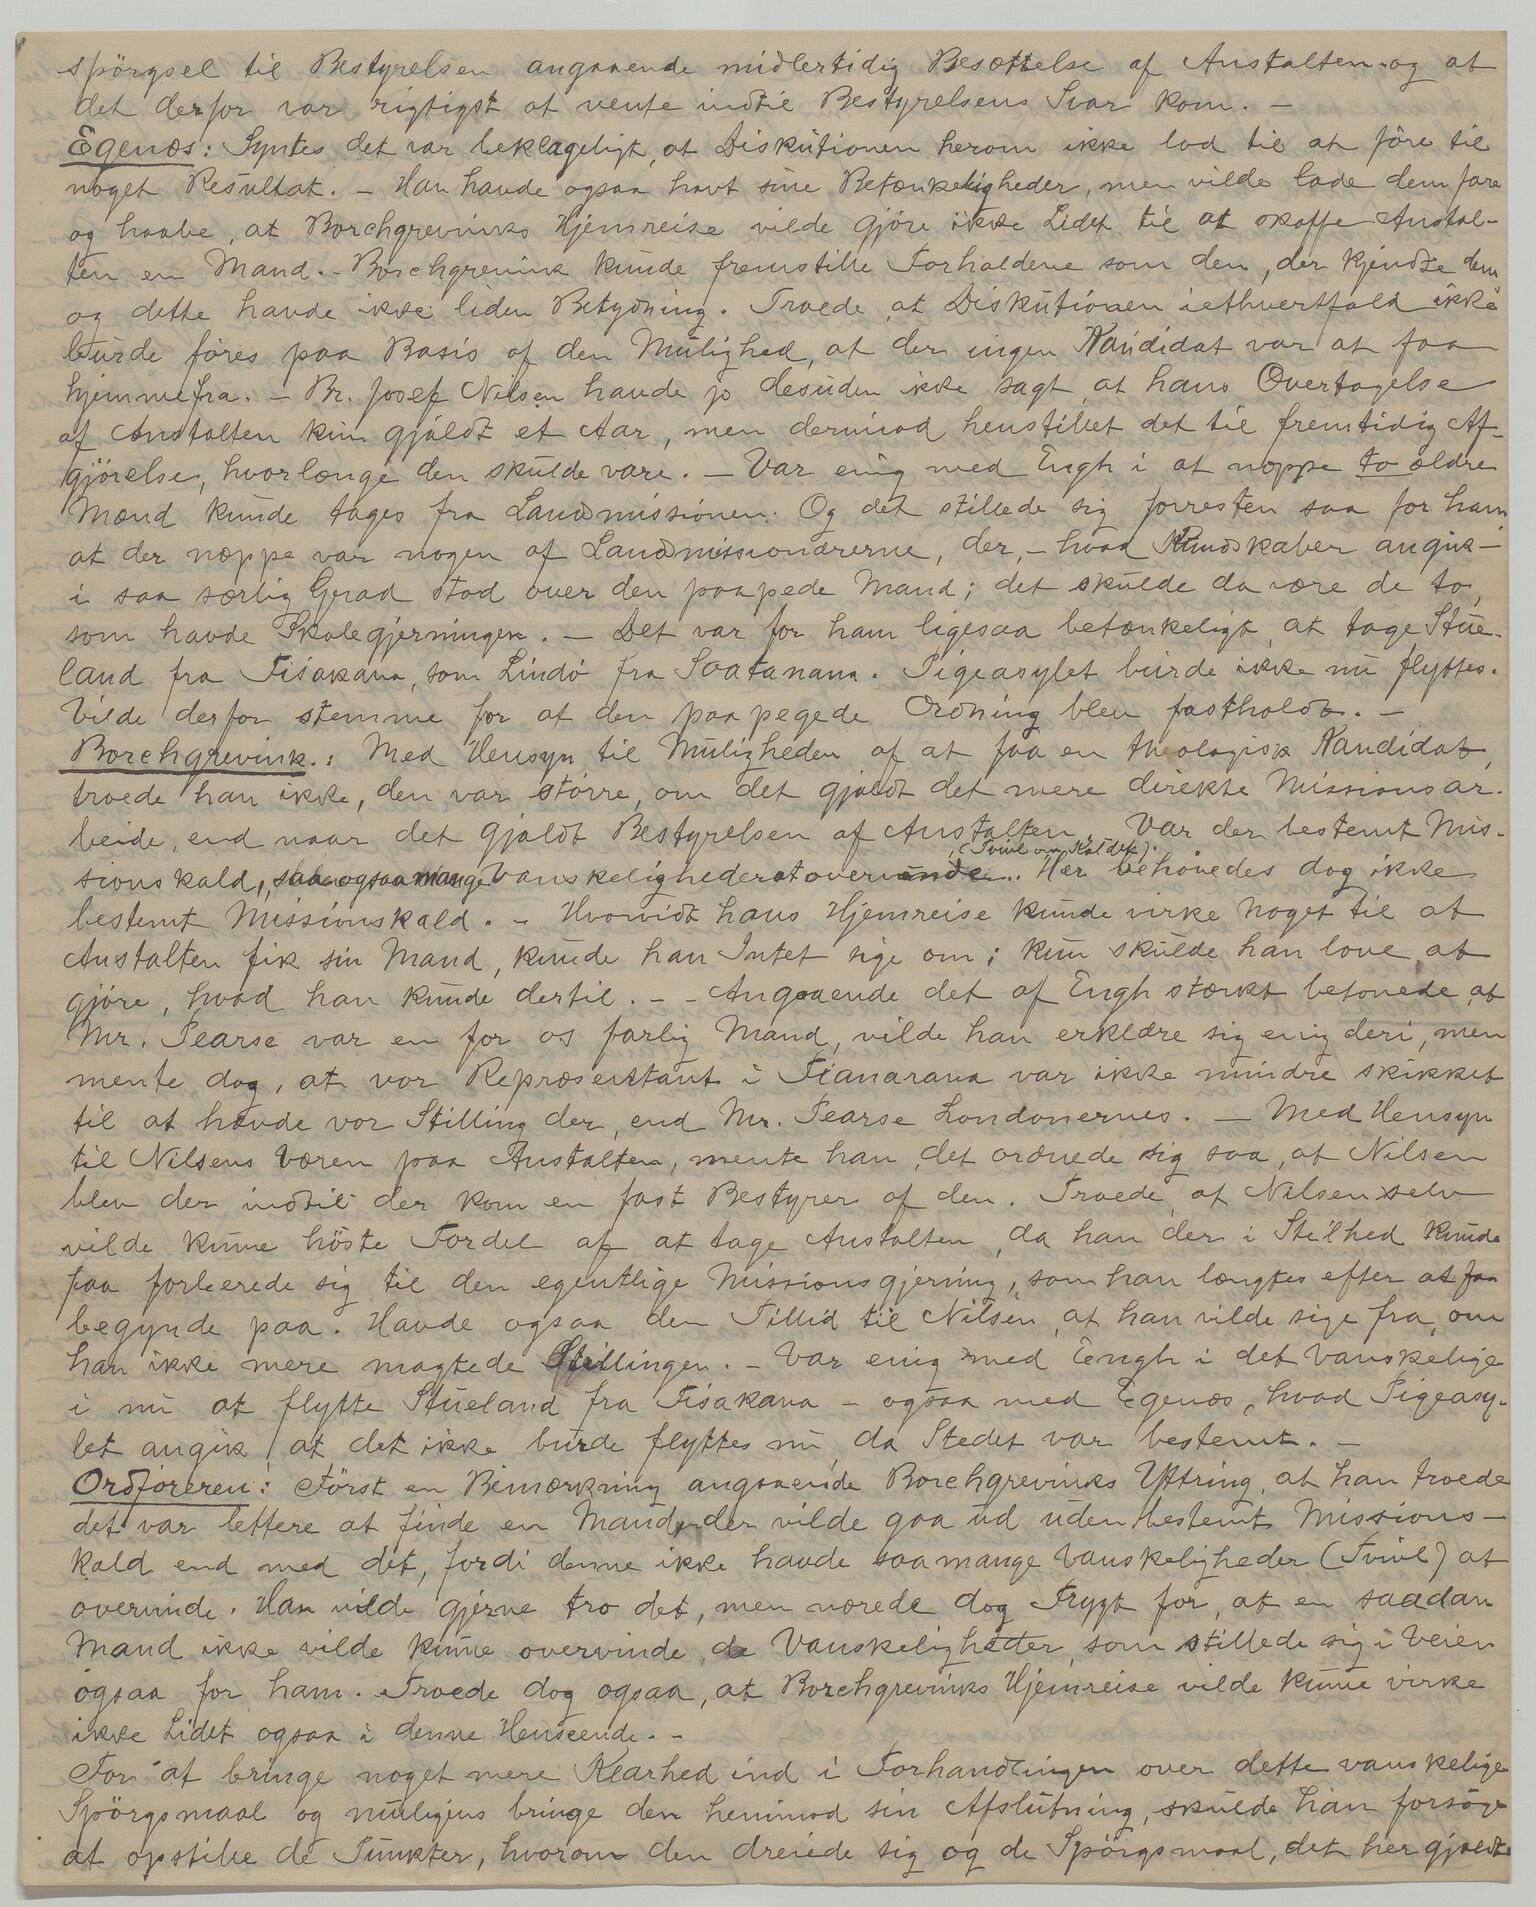 spörgsel til Bestyrelsen angaaende midlertidig Besættelse af Anstalten og at
det derfor var rigtigst at vente indtil Bestyrelsens Svar kom. —
Egenæs: Syntes det var beklageligt, at Diskutionen herom ikke lod til at före til
noget Resultat. — Han havde ogsaa havt sine Betænkeligheder, men vilde lade dem fare
og haabe, at Borchgrevinks Hjemreise vilde gjöre ikke Lidet til at skaffe Anstal-
ten en Mand. - Borchgrevink kunde fremstille Forholdene som den, der kjendte dem
og dette havde ikke liden Betydning. Troede, at Diskutionen i ethvertfald ikke
burde föres paa Basis af den Mulighed, at der ingen Kandidat var at faa
hjemmefra. — Br. Josef Nilsen havde jo desuden ikke sagt, at hans Overtagelse
af Anstalten kun gjaldt et Aar, men derimod henstillet det til fremtidig Af-
gjörelse, hvorlænge den skulde vare. — Var enig med Engh i at neppe to ældre
Mænd kunde tages fra Landmissionen. Og det stillede sig forresten saa for ham,
at der næppe var nogen af Landmissionærerne, der, — hvad Kundskaber angik —
i saa særlig Grad stod over den paapegede Mand; det skulde da være de to,
som havde Skolegjerningen. — Det var for ham ligesaa betænkeligt, at tage Stue-
land fra Fisakana, som Lindö fra Soatanana. Pigeasylet burde ikke nu flyttes.
Vilde derfor stemme for at den paapegede Ordning blev fastholdt. —
Borchgrevink.: Med Hensyn til Muligheden af at faa en theologisk Kandidat,
troede han ikke, den var större, om det gjaldt det mere direkte Missionsar-
beide, end naar det gjaldt Bestyrelsen af Anstalten. Var der bestemt Mis-
sionskald, saa ogsaa mange Vanskeligheder at overvinde, (Tvivl om Kaldet). Her behövedes dog ikke
bestemt Missionskald. — Hvorvidt hans Hjemreise kunde virke noget til at
Anstalten fik sin Mand, kunde han Intet sige om; kun skulde han love at
gjöre, hvad han kunde dertil. — - Angaaende det af Engh stærkt betonede, at
Mr. Pearse var en for os farlig Mand, vilde han erklære sig enig deri, men
mente dog, at vor Repræsentant i Fianarana var ikke mindre skikket
til at hævde vor Stilling der, end Mr. Pearse Londonernes. — Med Hensyn
til Nilsens Væren paa Anstalten, mente han, det ordnede sig saa, at Nilsen
blev der indtil der kom en fast Bestyrer af den. Troede, at Nilsen selv
vilde kunne höste Fordel af at tage Anstalten, da han der i Stilhed kunde
faa forberede sig til den egentlige Missionsgjerning, som han længtes efter at faa
begynde paa. Havde ogsaa den Tillid til Nilsen, at han vilde sige fra, om
han ikke mere magtede Stillingen. — Var enig med Engh i det Vanskelige
i nu at flytte Stueland fra Fisakana — ogsaa med Egenæs, hvad Pigeasy-
let angik, at det ikke burde flyttes nu da Stedet var bestemt. —
Ordföreren: Först en Bemærkning angaaende Borchgrevinks Yttring, at han troede
det var lettere at finde en Mand, der vilde gaa ud uden bestemt Missions-
kald end med det, fordi denne ikke havde saa mange Vanskeligheder (Tvivl) at
overvinde. Han vilde gjerne tro det, men nærede dog Frygt for, at en saadan
Mand ikke vilde kunne overvinde de Vanskeligheder, som stillede sig i Veien
ogsaa for ham. Troede dog ogsaa, at Borchgrevinks Hjemreise vilde kunne virke
ikke Lidet ogsaa i denne Henseende. —
For at bringe noget mere Klarhed ind i Forhandlingen over dette vanskelige
Spörgsmaal og muligens bringe den henimod sin Afslutning, skulde han forsöge
at opstille de Punkter, hvorom den dreiede sig og de Spörgsmaal, det her gjaldt